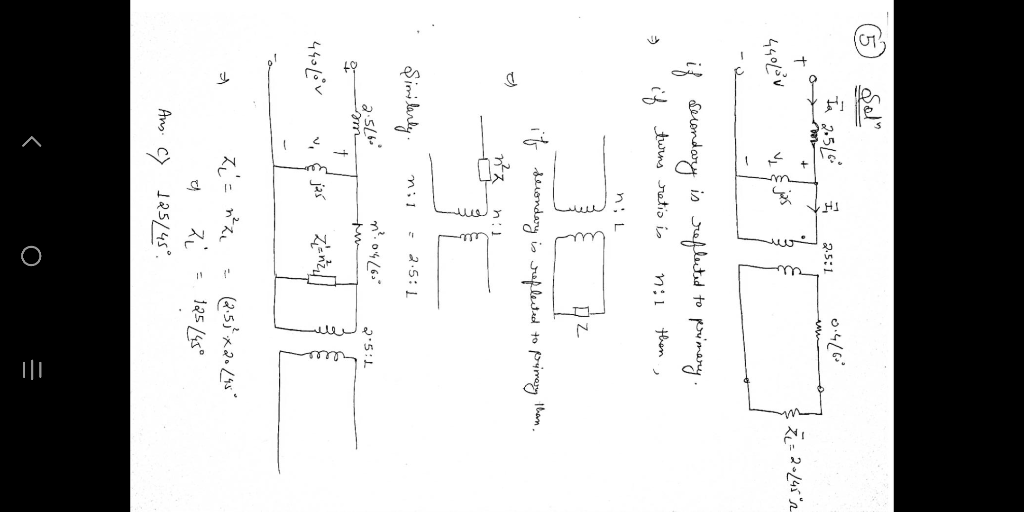 5 Solⁿ
Īa 2.5/60° + Ī1 2.5:1 0.4/60°
+
440/0° V V1 j25 Z̄L = 20/45° Ω
- -
if secondary is reflected to primary.
⇒ if turns ratio is n:1 then,
n:1
Z
if secondary is reflected to primary then.
⇒ n²Z n:1
Similarly. n:1 = 2.5:1
2.5/60° n² 0.4/60° 2.5:1
+ +
440/0° V V1 j25 ZL' = n²ZL
- -
⇒ ZL' = n²ZL = (2.5)² × 20/45°
⇒ ZL' = 125/45°
Ans. C) 125/45°.